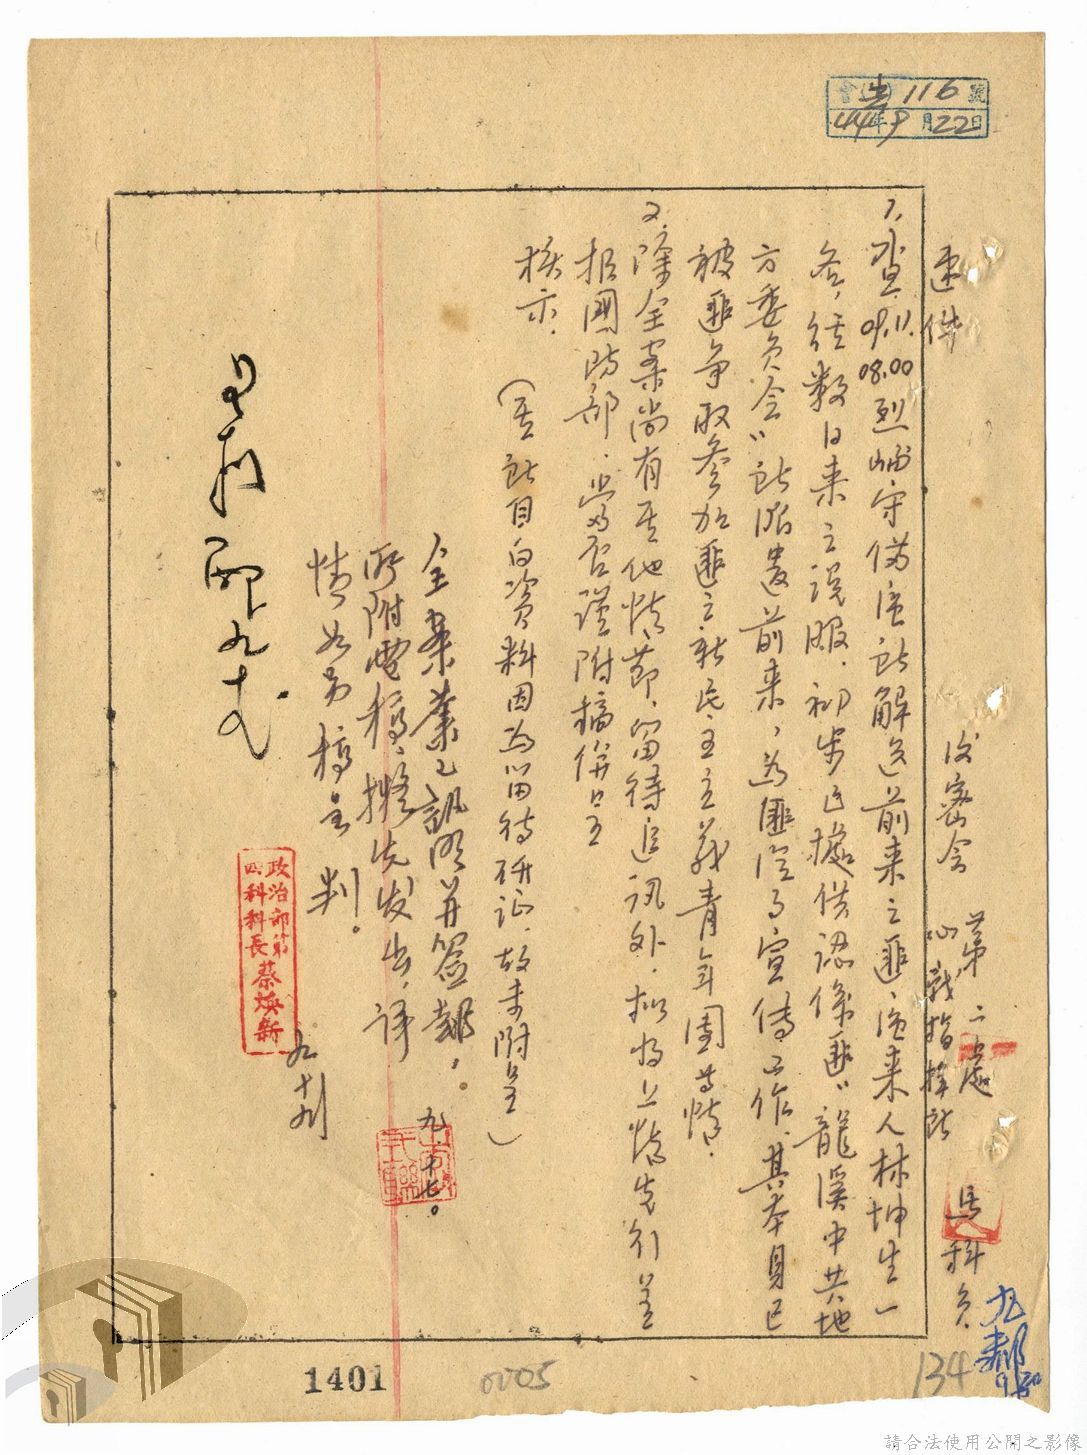 116號
44年9月22日
速件
後密会 第二處
心戰指揮所
馬科員
1、查09.11.08.00烈嶼守備區於解送前來之匪區來人林坤生一
名，經數日來之說服，初步已據供認係匪"龍溪中共地
方委員会"所派遣前來，為匪從事宣傳工作，其本身已
被匪爭取參加匪之新民主主義青年團等情．
2、除全案尚有其他情節，留待追訊外，擬將上情先行呈
报國防部，當否謹附稿併呈
核示．
(其所自白資料因為留待研証，故未附呈)
全案業已訊明并簽報，
所附電稿，擬先发出，詳
情如另稿呈 判。
九．十七。
政治部第
四科科長
蔡煥新
1401
0005
134
請合法使用公開之影像